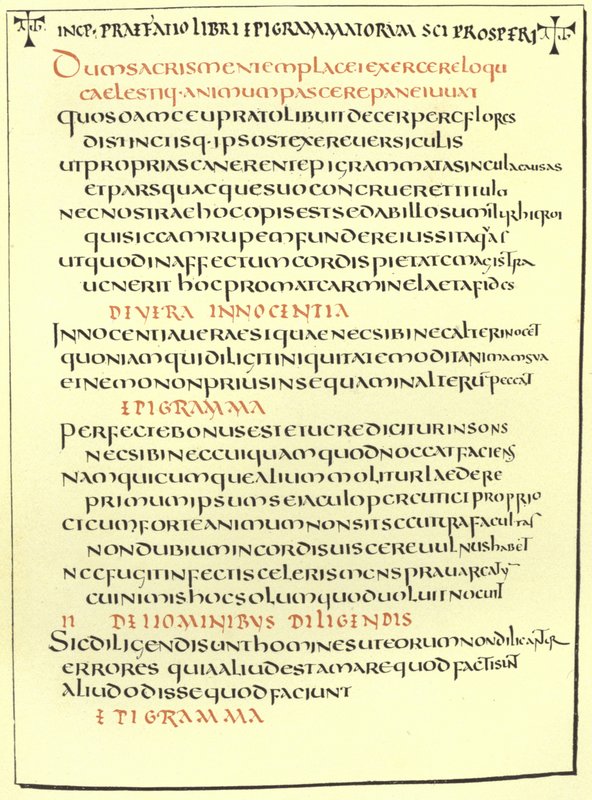 INCP· PRAEFATIO LIBRI EPIGRAMMATORVM SCI PROSPERI
DUMSACRISMENTEMPLACETEXERCERELOQU
CAELESTIQ·ANIMUMPASCEREPANEIUUAT
QUOSDAMCEUPRATOLIBUITDECERPERCFLORES
DISTINCTISQ·IPSOSTEXEREUERSICULIS
UTPROPRIASCANERENTEPIGRAMMATASINCULACAUSAS
ETPARSQUAEQUESUOCONCRUERETTITULO
NECNOSTRAEHOCOPISESTSEDABILLOSUMITUR
QUISICCAMRUPEMFUNDEREIUSSITAQUAS
UTQUODINAFFECTUMCORDISPIETATEMAGISTRA
UENERIT HOCPROMATCARMINELAETAFIDES
DEVERA INNOCENTIA
INNOCENTIAUERAESTQUAENECSIBINECALTERINOCET
QUONIAMQUIDILIGITINIQUITATEMODITANIMAMSUA
ETNEMONONPRIUSINSEQUAMINALTERU PECCAT
EPIGRAMMA
PERFECTEBONUSESTETUEREDICITURINSONS
NECSIBINECCUIQUAMQUODNOCCATFACIENS
NAMQUICUMQUEALIUMMOLITURLAEDERE
PRIMUMIPSUMSEIACULOPERCUTIETPROPRIO
ETCUMFORTEANIMUMNONSITSECUTURAFACULTAS
NONDUBIUMINCORDISUISCEREUULNUSHABET
NECFUGITINFECTISCELERISMENSPRAUAREATU
CUINIMISHOCSOLUMQUODUOLUITNOCUIT
II DEHOMINIBUS DILIGENDIS
SICDILIGENDISUNTHOMINESUTEORUMNONDILIGANTUR
ERRORES QUIAALIUDESTAMAREQUOD FACTISUNT
ALIUDODISSEQUODFACIUNT
EPIGRAMMA